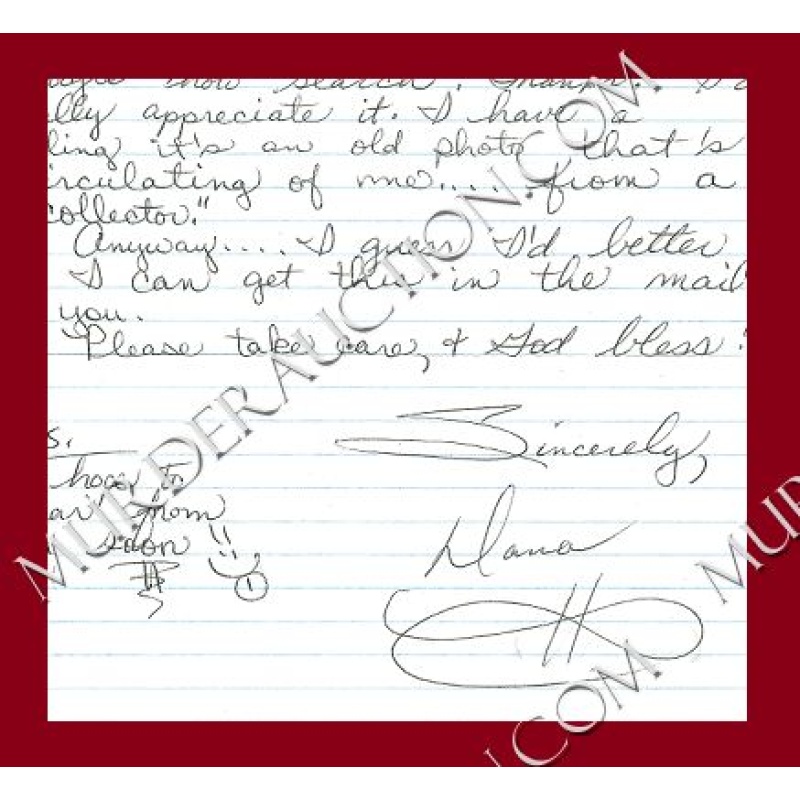 search.
lly appreciate it. I have a
ling it's an old photo that's
irculating of me.... from a
collector."
Anyway.... I guess I'd better
I can get this in the mail
you.
Please take care, & God bless!
Sincerely,
S.
hope to
ar from
soon
Dana
MURDERAUCTION.COM
MUR
N.COM